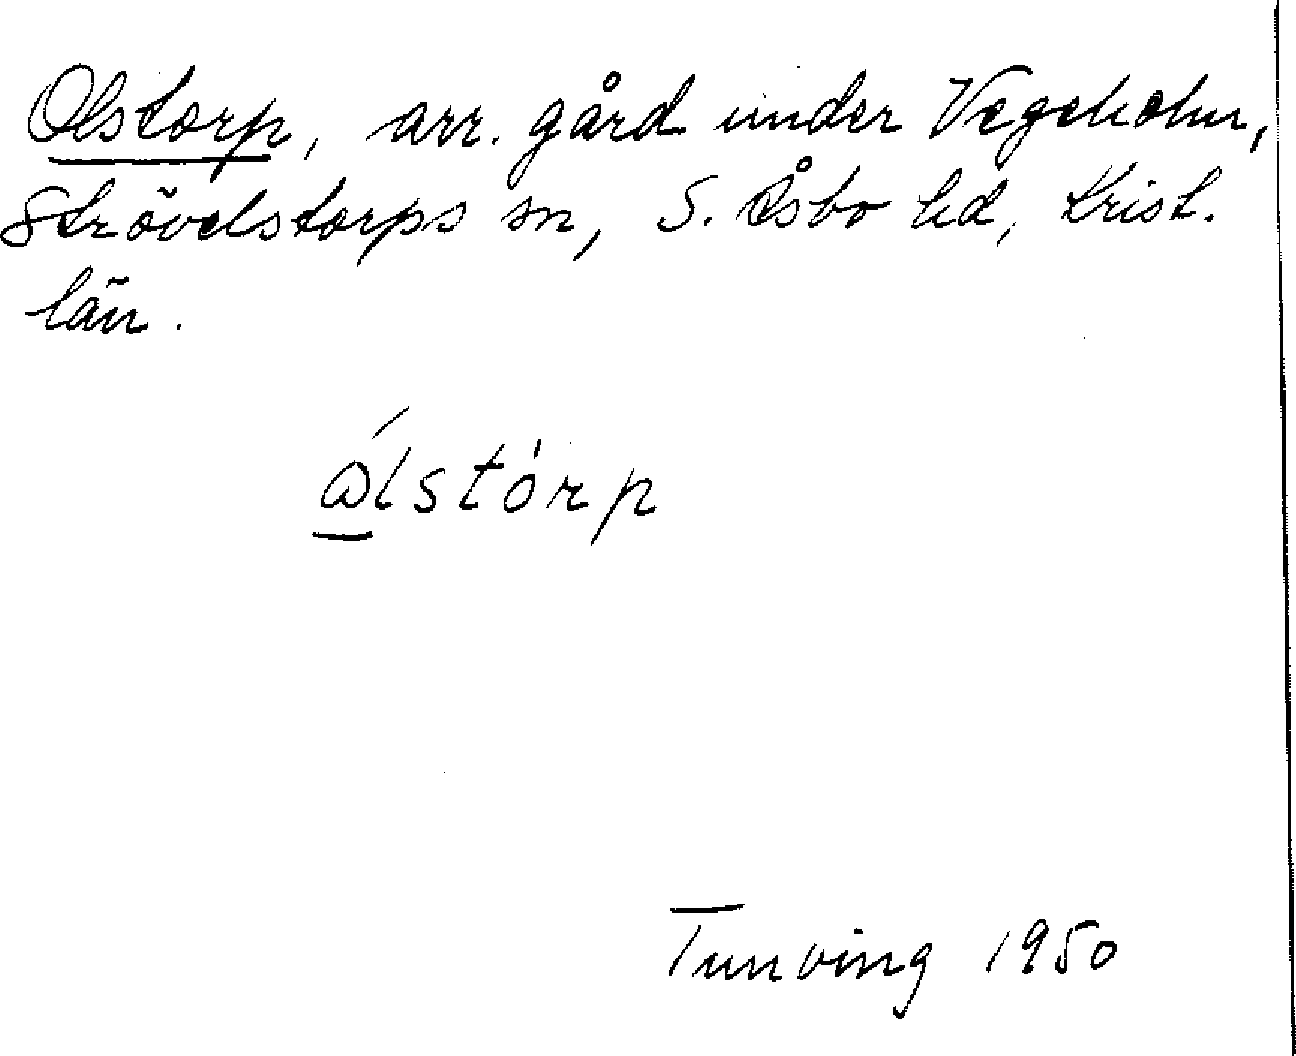 Olstorp, arr. gård under Vegeholm,
Strövelstorps sn, S. Åsbo hd, Krist.
län.
ålstòrp
Tunving 1950